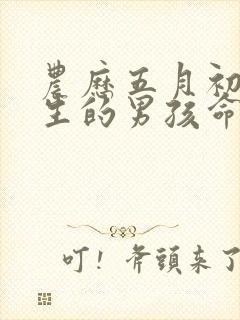 農歷五月初
生的男孩命
叮！斧頭來了